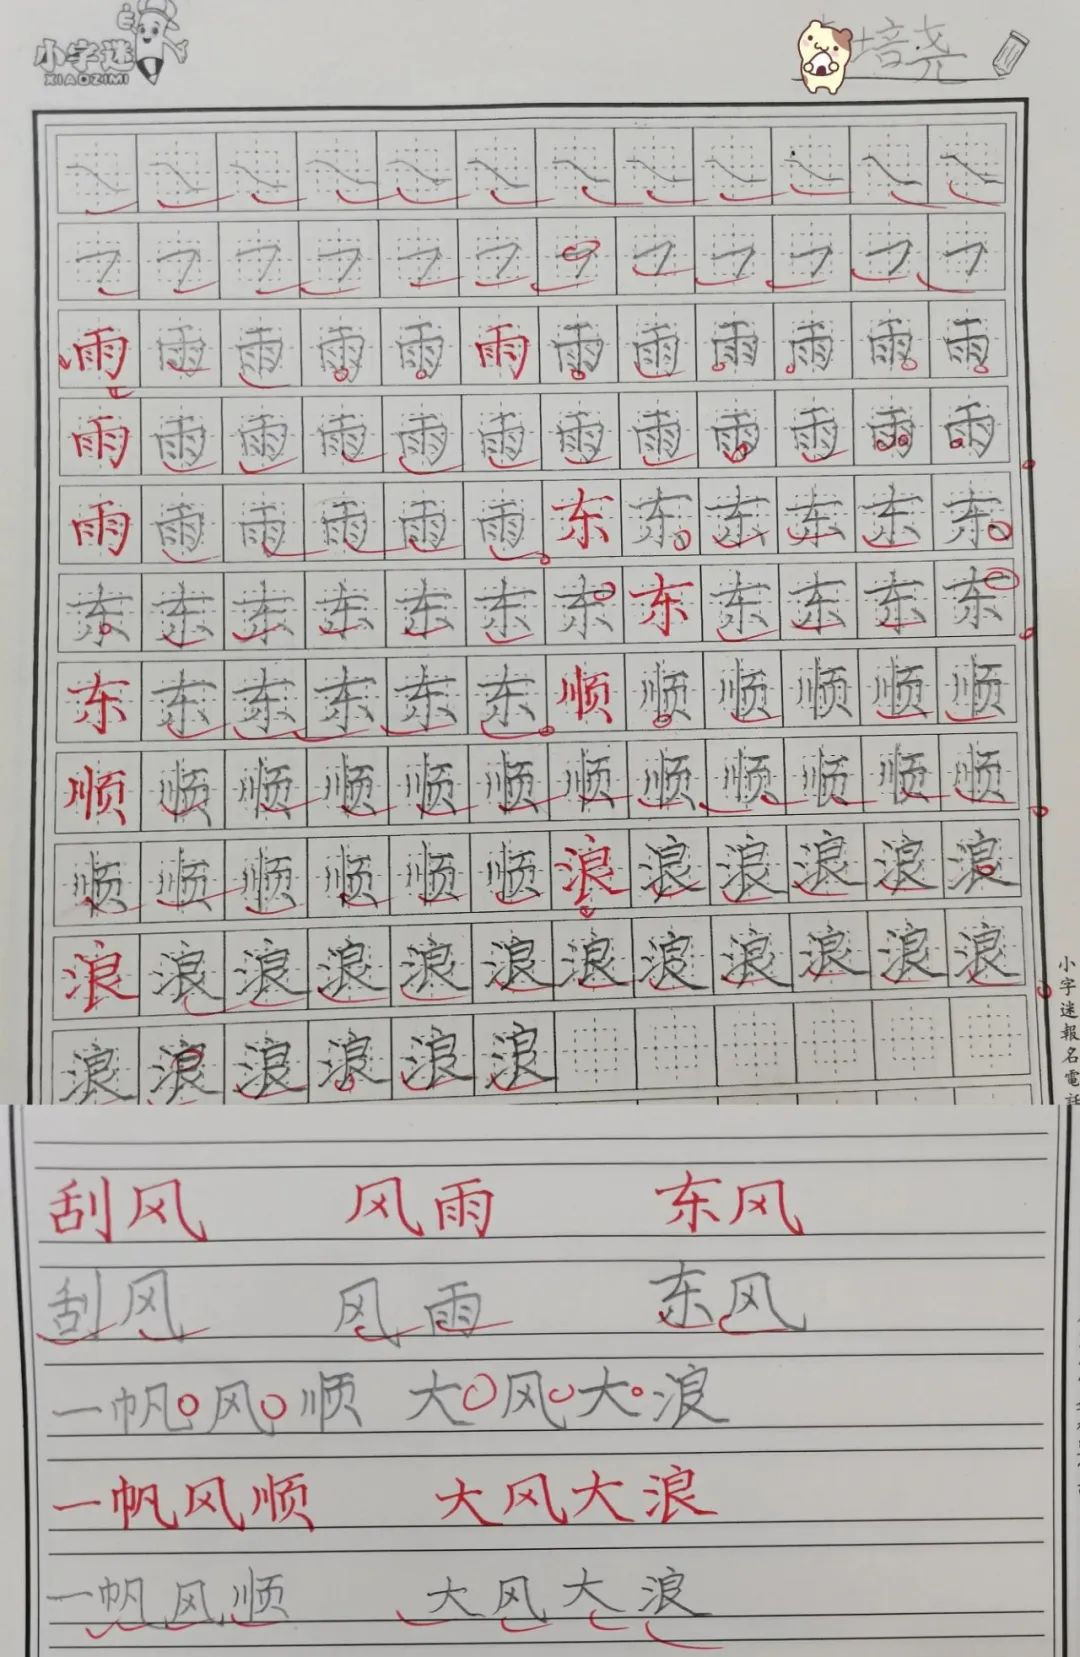 小字迷
XIAOZIMI
培尧
雨雨雨雨雨雨雨雨雨雨雨雨
雨雨雨雨雨雨雨雨雨雨雨雨
雨雨雨雨雨雨东东东东东东
东东东东东东东东东东东东
东东东东东东顺顺顺顺顺顺
顺顺顺顺顺顺顺顺顺顺顺顺
顺顺顺顺顺顺浪浪浪浪浪浪
浪浪浪浪浪浪浪浪浪浪浪浪
浪浪浪浪浪浪
小字迷報名電
刮风 风雨 东风
刮风 风雨 东风
一帆风顺 大风大浪
一帆风顺 大风大浪
一帆风顺 大风大浪